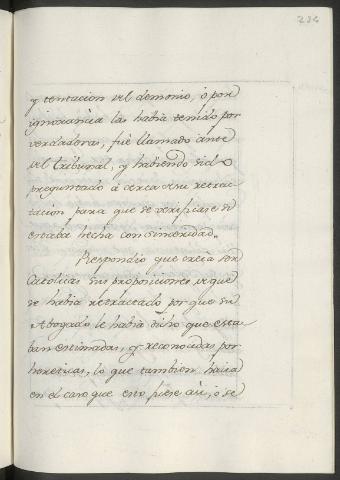 284
y tentacion del demonio, o por
ignorancia las habia tenido por
verdadoras, fue llamado ante
del tribunal, y habiendo sido
preguntado á cerca de su retrac-
tacion para que se verificase si
estaba hecha con sinceridad.
Respondio que creia ser
Catolicas sus proposiciones, y que
se habia retractado por que su
Abogado le habia dicho que esta-
ban estimadas, y reconocidas por
hereticas, lo que tambien haria
en el caso que esto fuese asi, o se